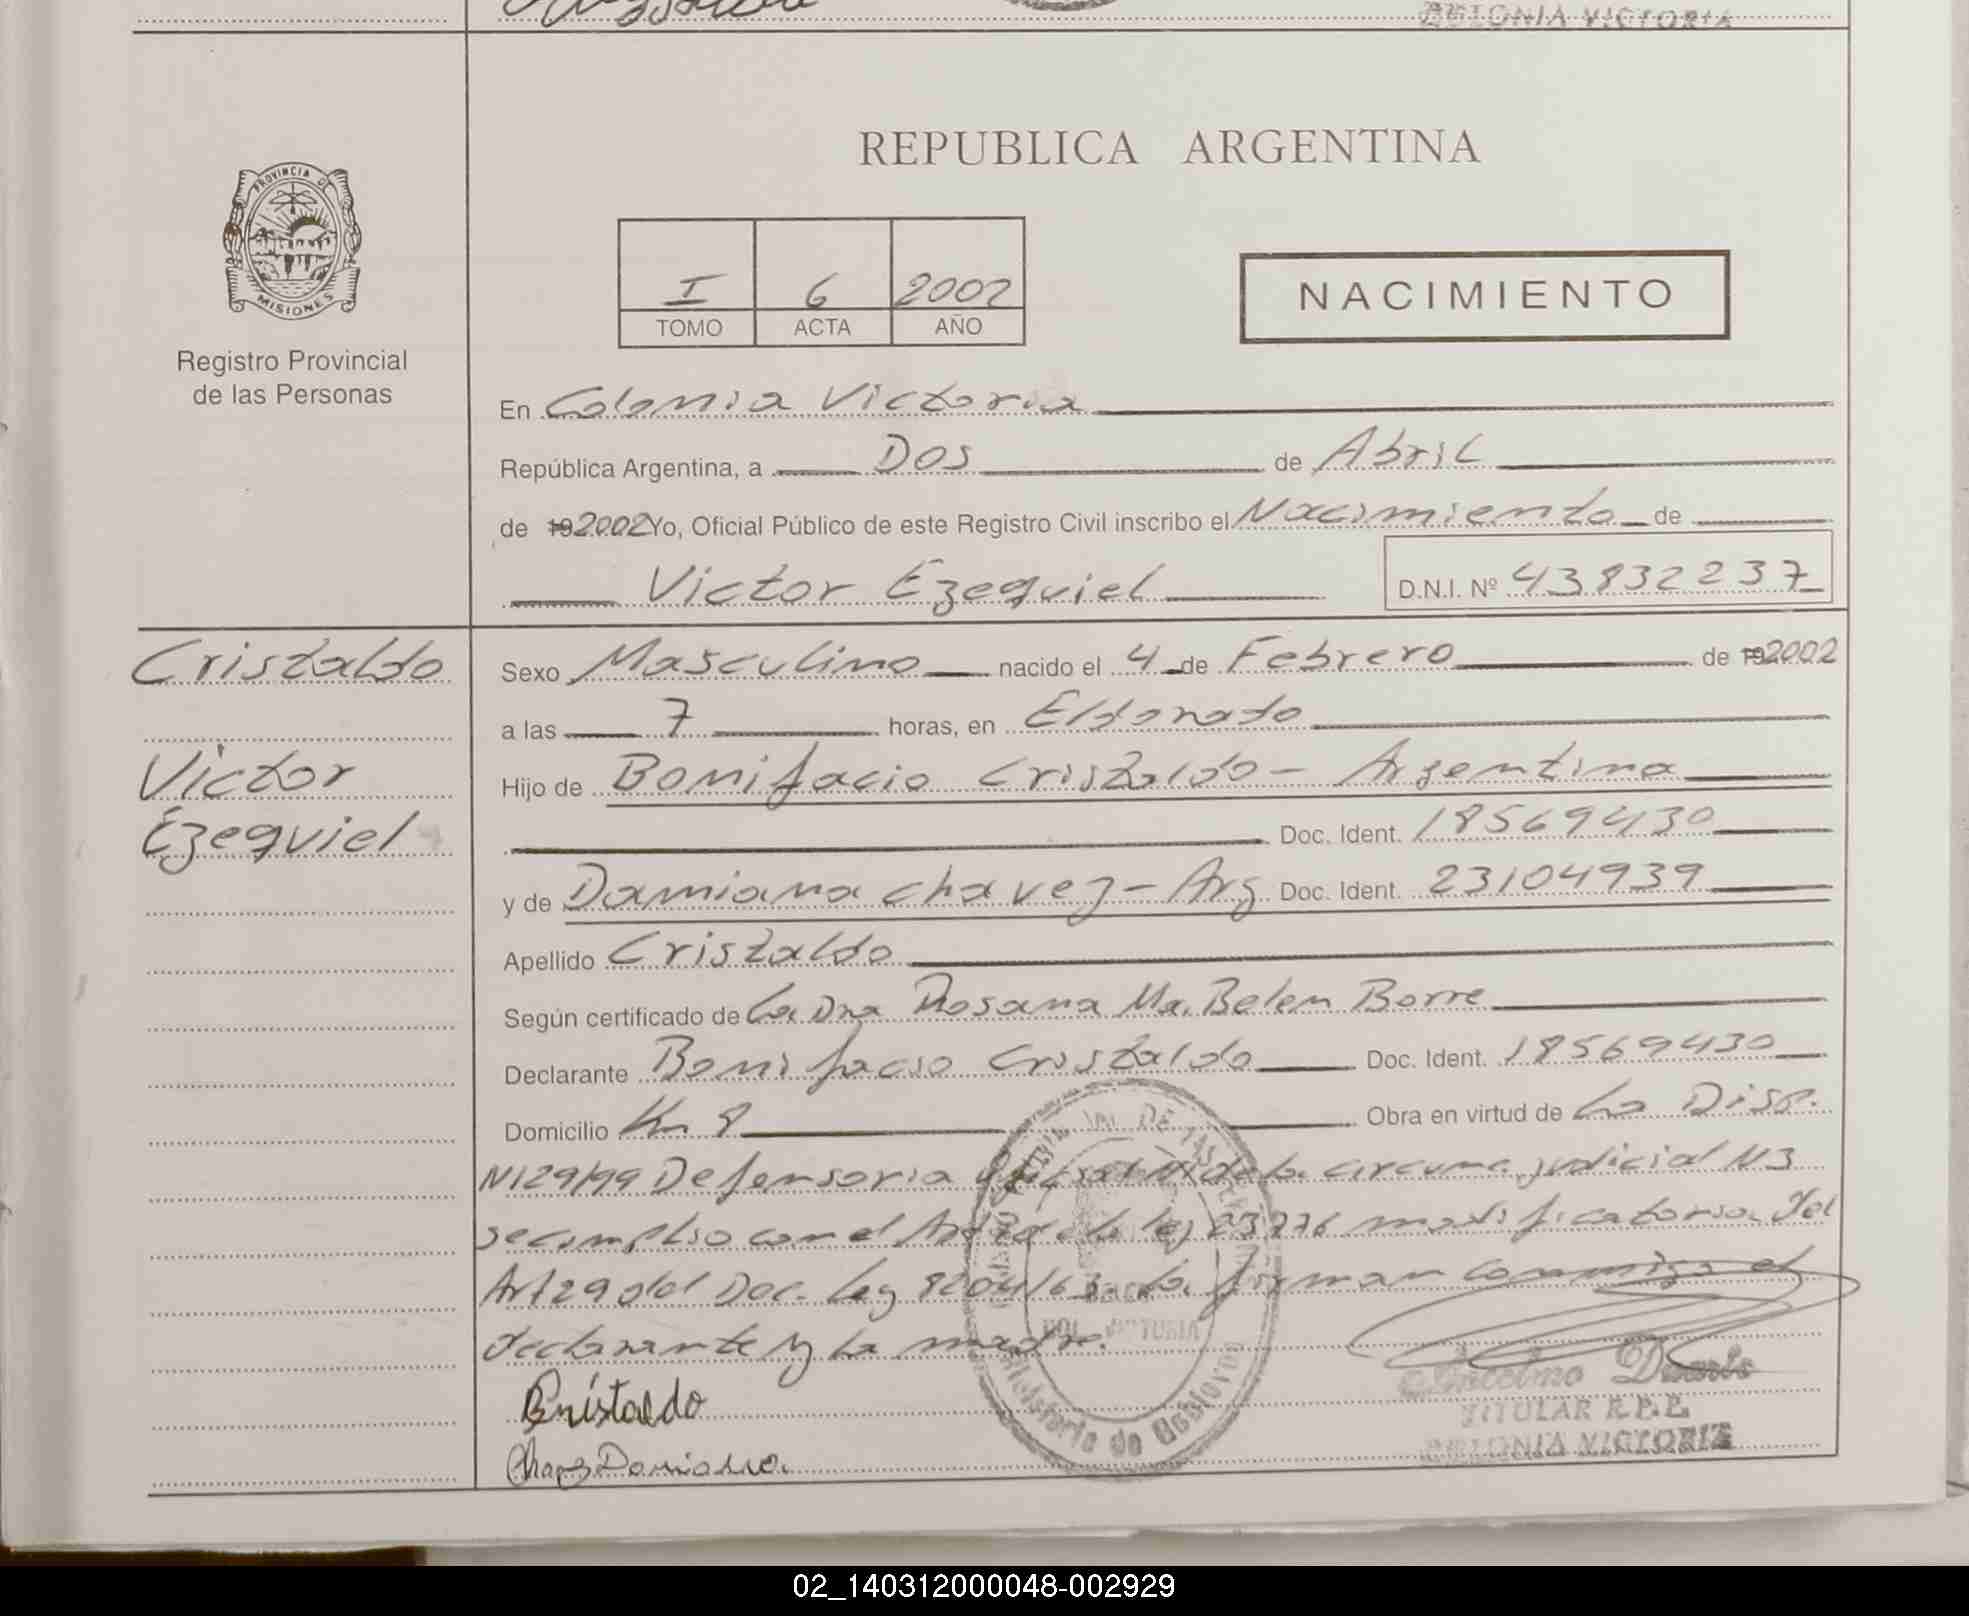 COLONIA VICTORIA
REPUBLICA ARGENTINA
PROVINCIA DE
MISIONES
Registro Provincial
de las Personas
I 6 2002
TOMO ACTA AÑO
NACIMIENTO
En Colonia Victoria
República Argentina, a Dos de Abril
de 192002 Yo, Oficial Público de este Registro Civil inscribo el Nacimiento de
Victor Ezequiel D.N.I. Nº 43832237
Cristaldo
Victor
Ezequiel
Sexo Masculino nacido el 4 de Febrero de 192002
a las 7 horas, en Eldorado
Hijo de Bonifacio Cristaldo - Argentina
Doc. Ident. 18569430
y de Damiana Chavez - Arg Doc. Ident. 23104939
Apellido Cristaldo
Según certificado de La Dra Rosana Ma. Belen Borre
Declarante Bonifacio Cristaldo Doc. Ident. 18569430
Domicilio Km 8 Obra en virtud de La Disp.
N129/99 Defensoria de la circunc. judicial N3
se cumplio con el de la ley 23776 modificatoria del
Art 29 del Dec. Ley 8204/63. La firman conmigo el
declarante y la madre.
Cristaldo
Chavez Damiana.
Ministerio de Gobierno
Anselmo
TITULAR R.P.P.
COLONIA VICTORIA
02_140312000048-002929